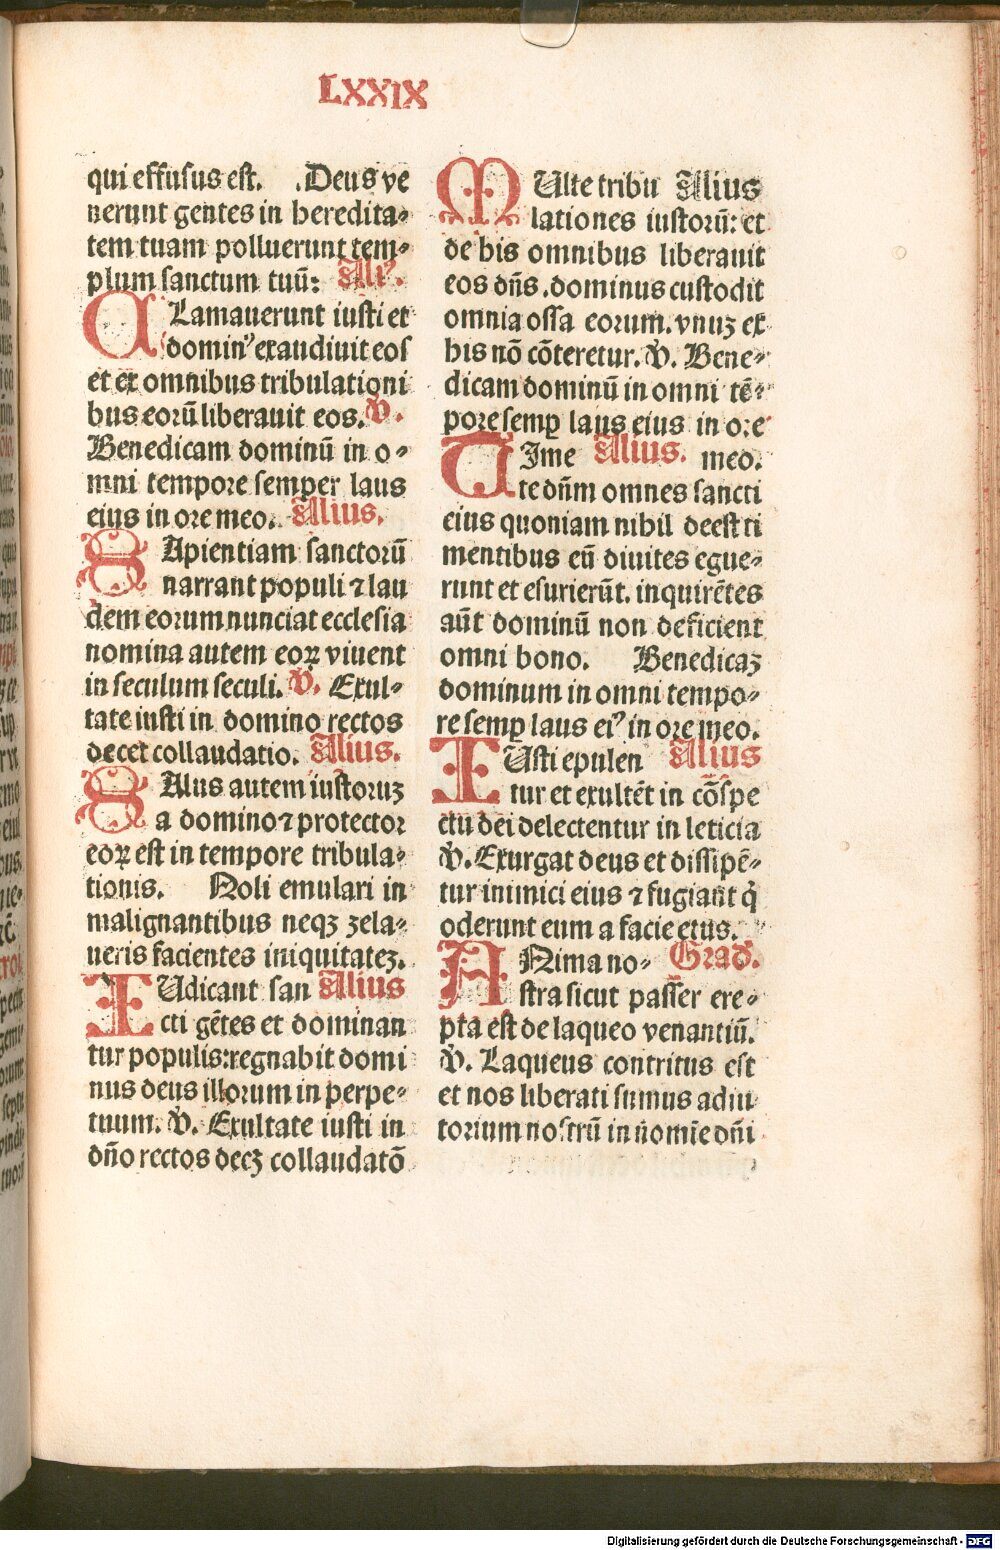 LXXIX
qui effusus est. .Deus ve
nerunt gentes in heredita⸗
tem tuam polluerunt tem⸗
plum sanctum tuū: Aliꝰ.
CLamauerunt iusti et
dominꝰ exaudiuit eos
et ex omnibus tribulationi
bus eorū liberauit eos. V̾.
Benedicam dominū in o⸗
mni tempore semper laus
eius in ore meo. Alius.
SApientiam sanctorū
narrant populi ⁊ lau
dem eorum nunciat ecclesia
nomina autem eoꝝ viuent
in seculum seculi. V̾. Exul⸗
tate iusti in domino rectos
decet collaudatio. Alius.
SAlus autem iustoruꝫ
a domino ⁊ protector
eoꝝ est in tempore tribula⸗
tionis. Noli emulari in
malignantibus neqꝫ zela⸗
ueris facientes iniquitateꝫ.
IUdicant san Alius
cti gētes et dominan
tur populis: regnabit domi
nus deus illorum in perpe⸗
tuum. V̾. Exultate iusti in
dño rectos decꝫ collaudatō
MUlte tribu Alius
lationes iustorū: et
de his omnibus liberauit
eos dñs . dominus custodit
omnia ossa eorum. vnuꝫ ex
his nō cōteretur. V̾. Bene⸗
dicam dominū in omni tē⸗
pore semꝑ laus eius in ore
TIme Alius. meo.
te dñm omnes sancti
eius quoniam nihil deest ti
mentibus eū diuites egue⸗
runt et esurierūt. inquirētes
aūt dominū non deficient
omni bono. Benedicaꝫ
dominum in omni tempo⸗
re semꝑ laus eiꝰ in ore meo.
IUsti epulen Alius
tur et exultēt in cōspe
ctu dei delectentur in leticia
V̾. Exurgat deus et dissipē⸗
tur inimici eius ⁊ fugiant q̇
oderunt eum a facie eius.
ANima no⸗ Grad.
stra sicut passer ere⸗
pta est de laqueo venantiū.
V̾. Laqueus contritus est
et nos liberati sumus adiu
torium nostrū in nomīe dñi
Digitalisierung gefördert durch die Deutsche Forschungsgemeinschaft - DFG